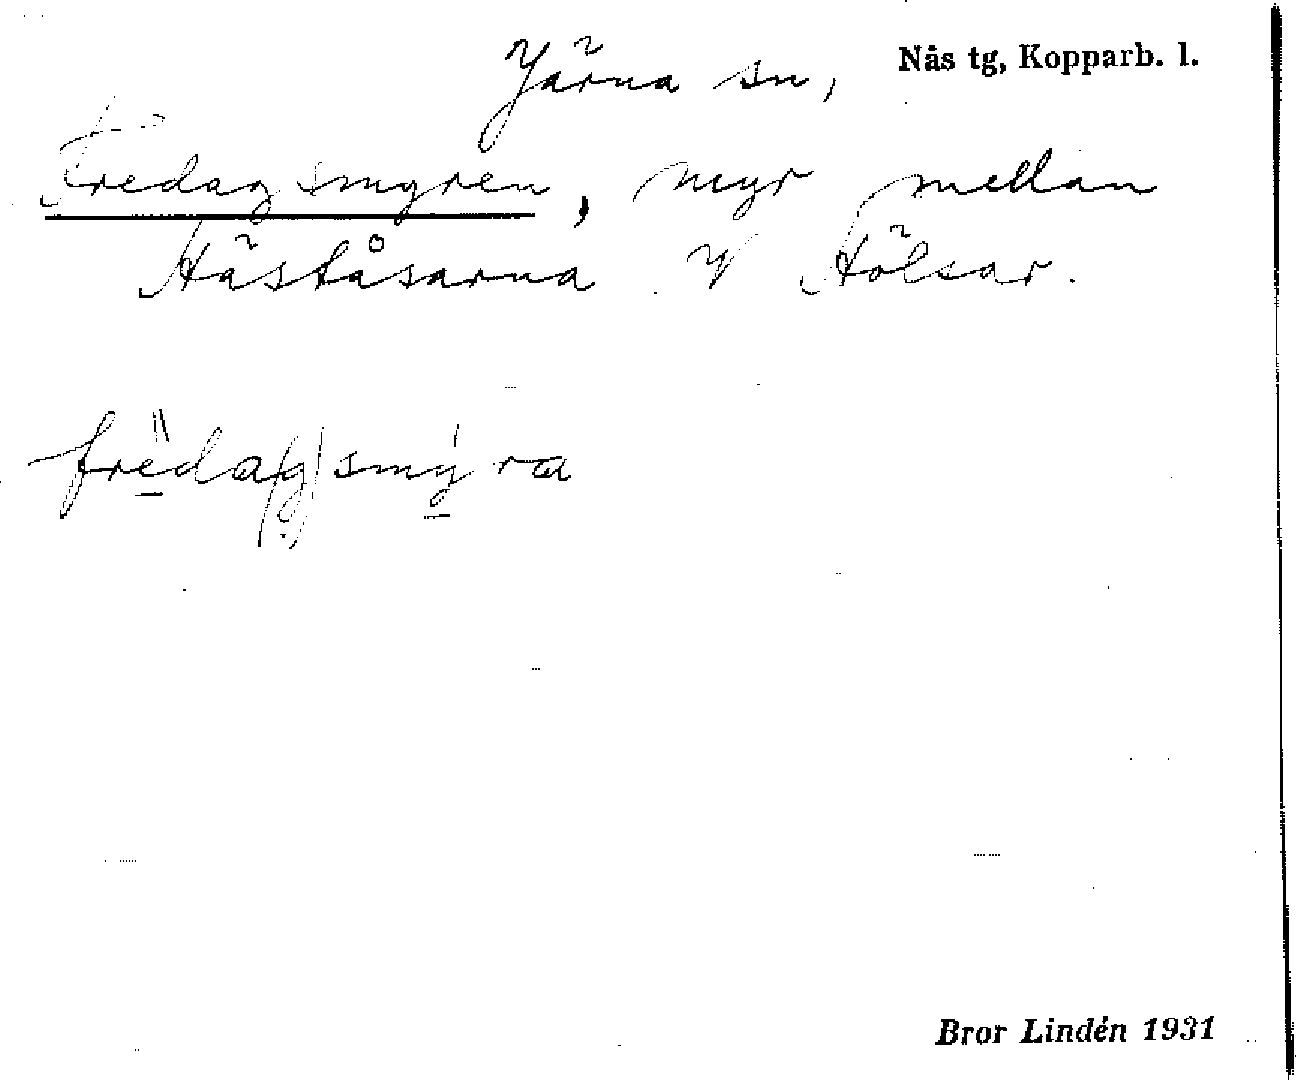 Järna sn, Nås tg, Kopparb. l.
Fredagsmyren, myr mellan
Häståsarna o/ Hölsar.
frèda(g)smýra
Bror Lindén 1931